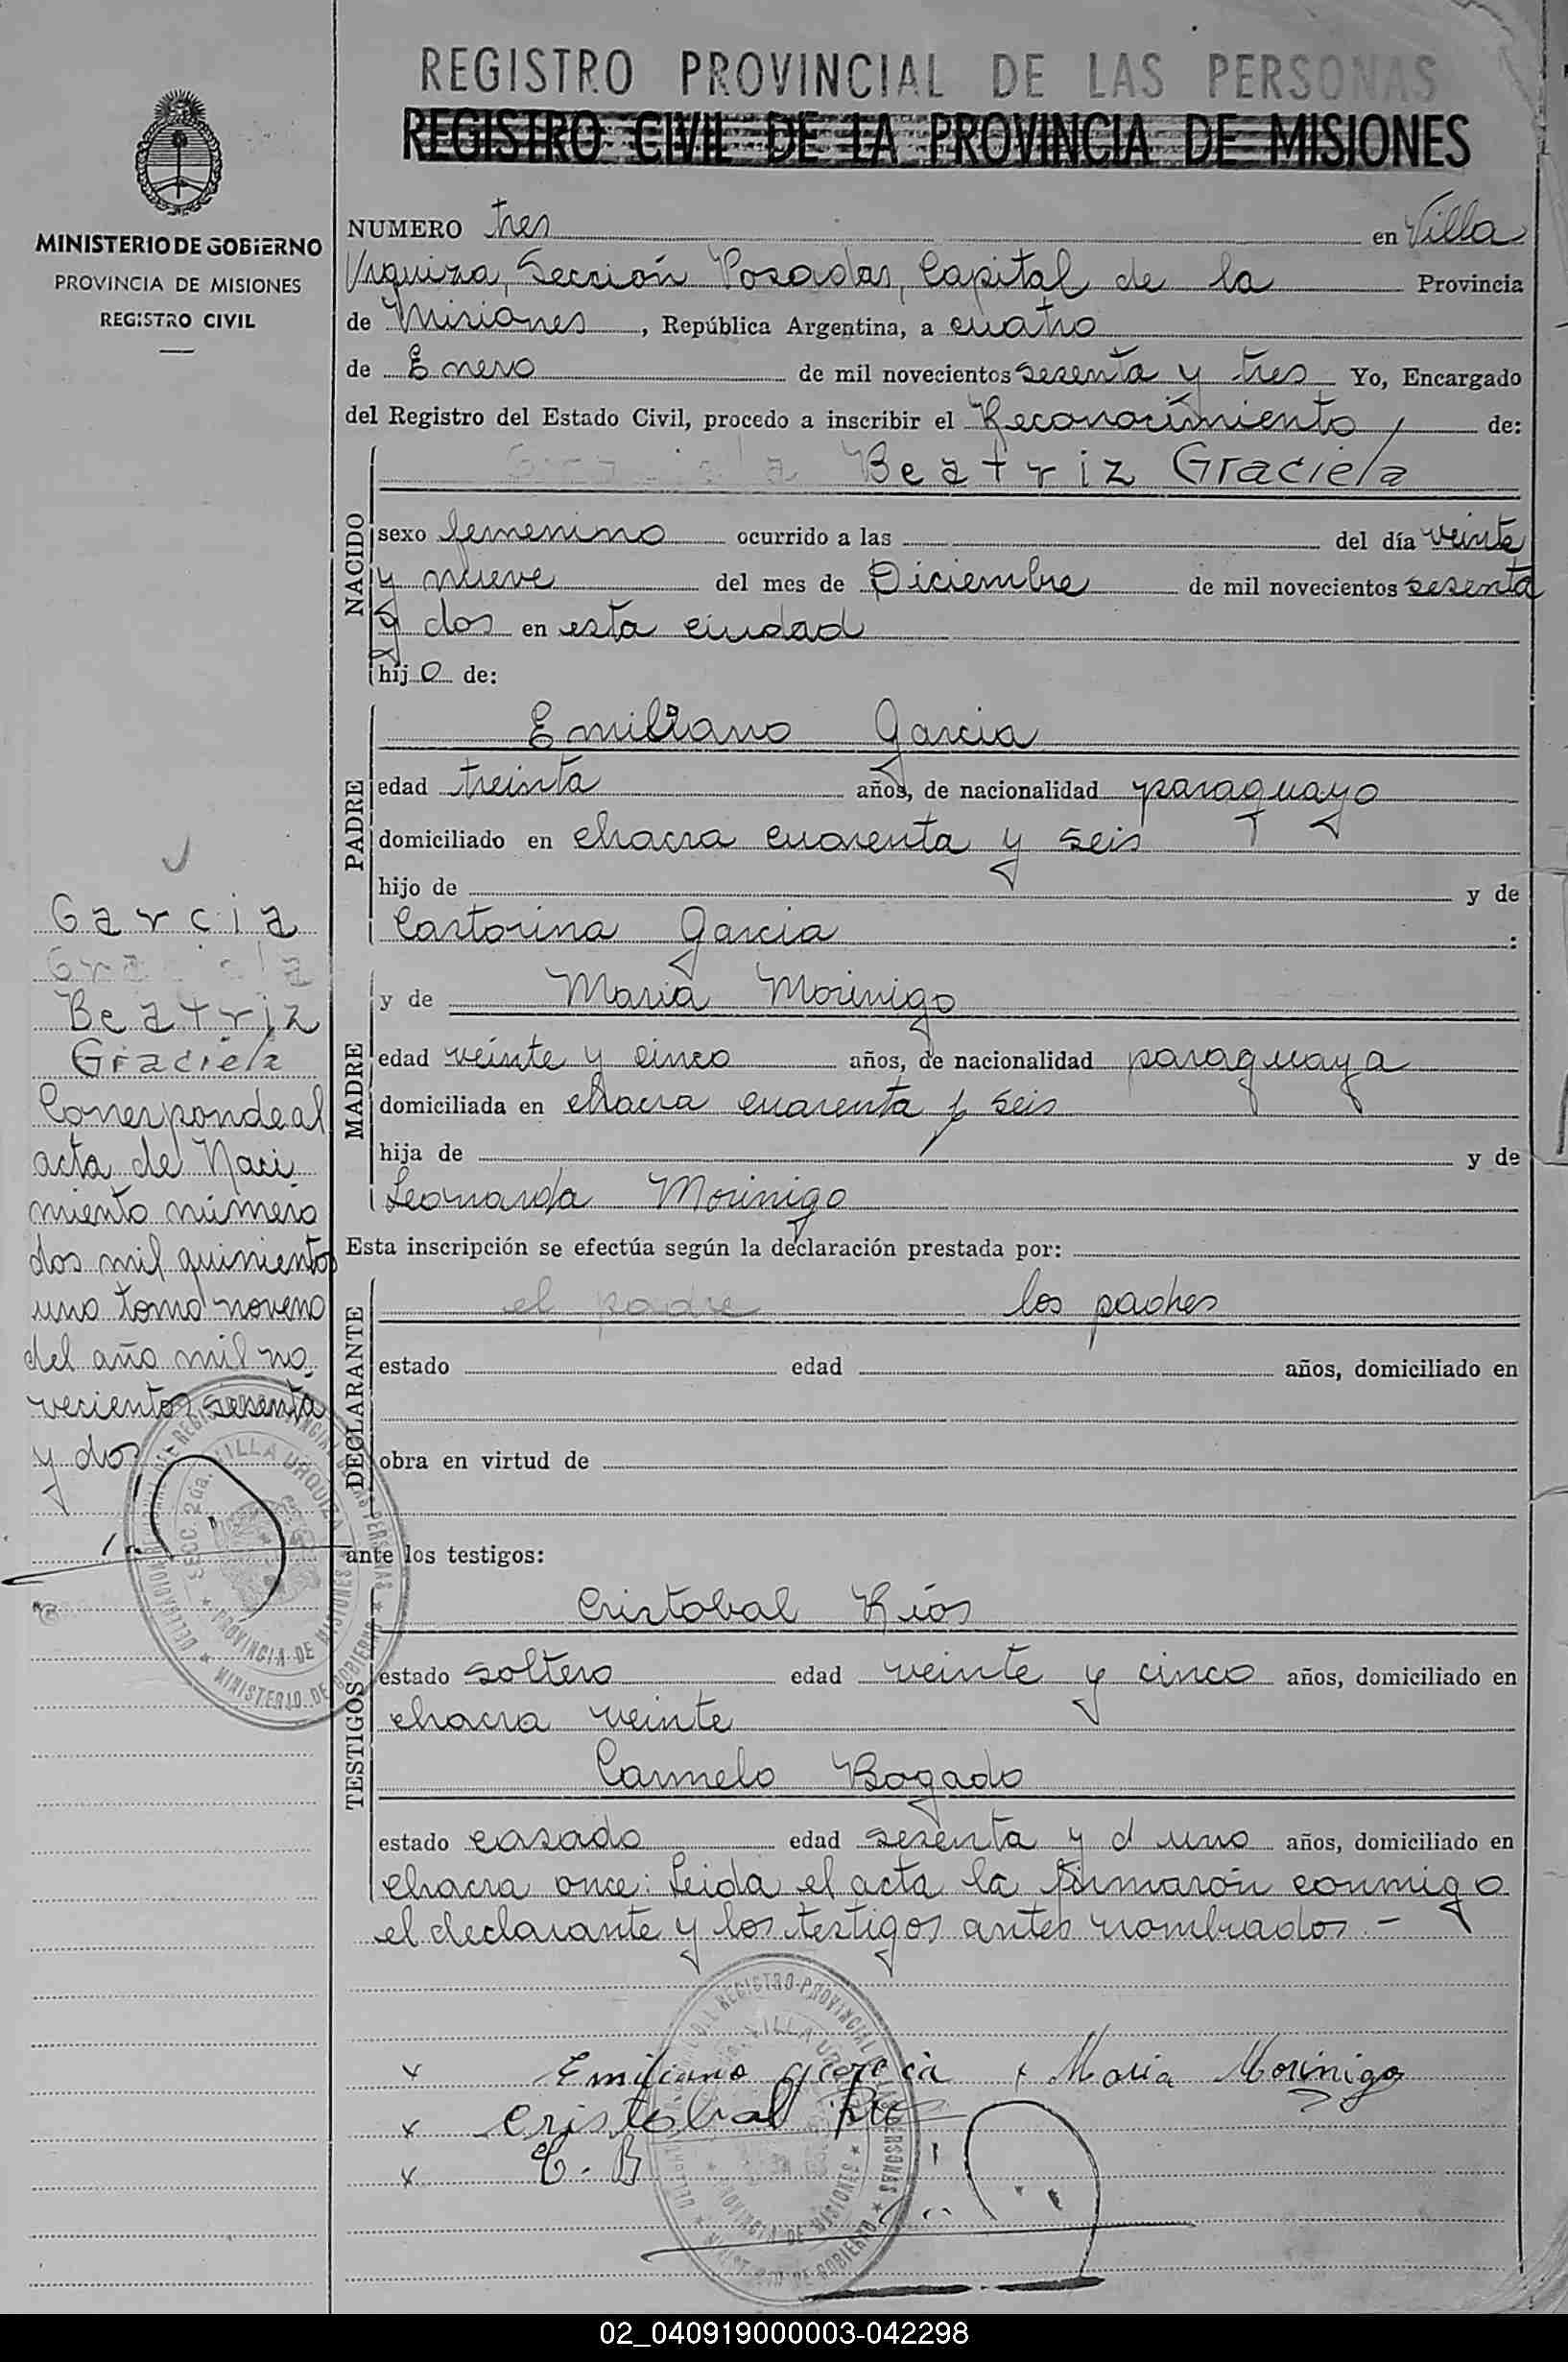 REGISTRO PROVINCIAL DE LAS PERSONAS
REGISTRO CIVIL DE LA PROVINCIA DE MISIONES
MINISTERIO DE GOBIERNO
PROVINCIA DE MISIONES
REGISTRO CIVIL
NUMERO tres en Villa
Urquiza, Sección Posadas, Capital de la Provincia
de Misiones, República Argentina, a cuatro
de Enero de mil novecientos sesenta y tres Yo, Encargado
del Registro del Estado Civil, procedo a inscribir el Reconocimiento de:
NACIDO
Beatriz Graciela
sexo femenino ocurrido a las del día veinte
y nueve del mes de Diciembre de mil novecientos sesenta
y dos en esta ciudad
hijo de:
PADRE
Emiliano Garcia
edad treinta años, de nacionalidad paraguayo
domiciliado en chacra cuarenta y seis
hijo de y de
Castorina Garcia :
MADRE
y de Maria Morinigo
edad veinte y cinco años, de nacionalidad paraguaya
domiciliada en chacra cuarenta y seis
hija de y de
Leonarda Morinigo
Esta inscripción se efectúa según la declaración prestada por:
DECLARANTE
el padre los padres
estado edad años, domiciliado en
obra en virtud de
ante los testigos:
TESTIGOS
Cristobal Ríos
estado soltero edad veinte y cinco años, domiciliado en
chacra veinte
Carmelo Bogado
estado casado edad sesenta y d uno años, domiciliado en
chacra once: Leida el acta la firmarón conmigo
el declarante y los testigos antes nombrados.-
x Emiliano garcia x Maria Morinigo
x cristobal Rios
x C. B
Garcia
Beatriz
Graciela
Corresponde al
acta de Naci
miento número
dos mil quinientos
uno tomo noveno
del año mil no
vecientos sesenta
y dos
VILLA URQUIZA
SECC. 2da.
PROVINCIA DE MISIONES
MINISTERIO DE GOBIERNO
REGISTRO PROVINCIAL
PERSONAS
PROVINCIA DE MISIONES
MINISTERIO DE GOBIERNO
02_040919000003-042298